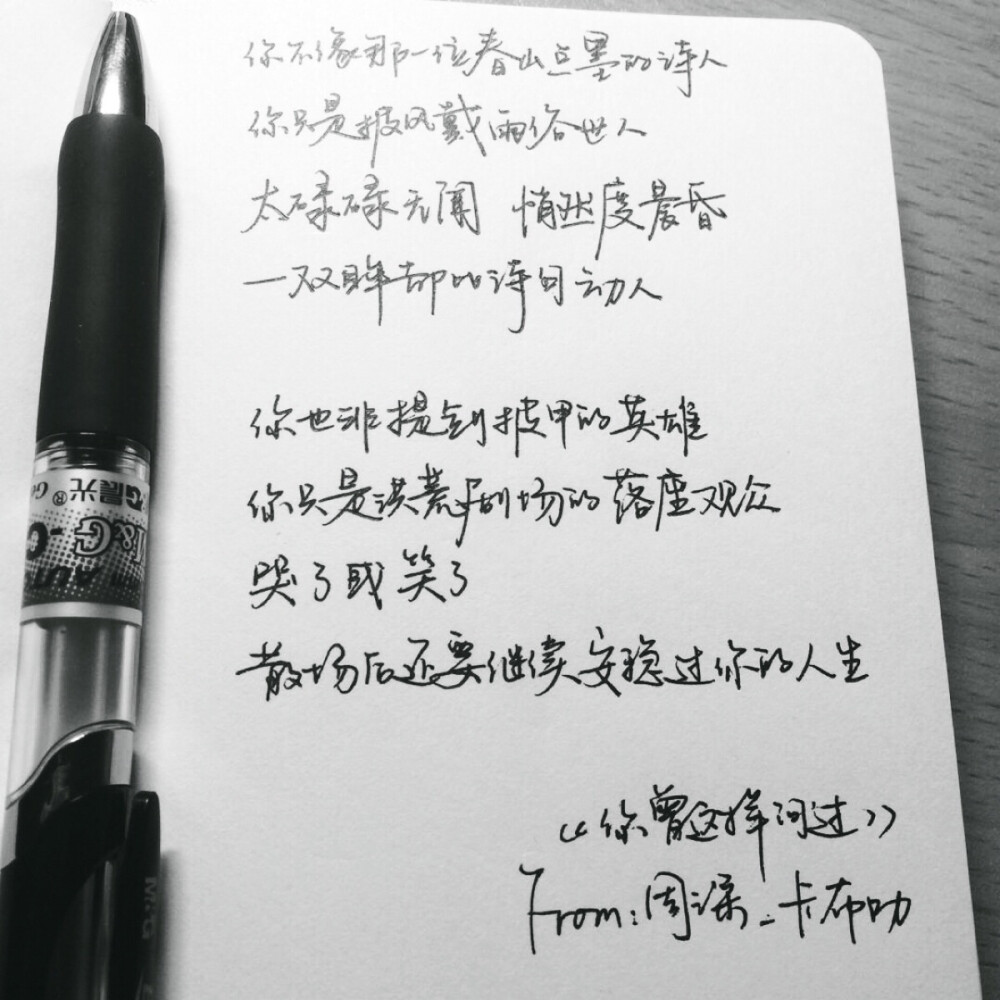 你不像那一位春山点墨的诗人
你只是披风戴雨俗世人
太碌碌无闻 悄然度晨昏
一双眸都比诗句动人
你也非提剑披甲的英雄
你只是洪荒剧场的落座观众
哭了或笑了
散场后还要继续安稳过你的人生
《你曾这样问过》
From:周深_卡布叻
晨光®
M&G
M&G